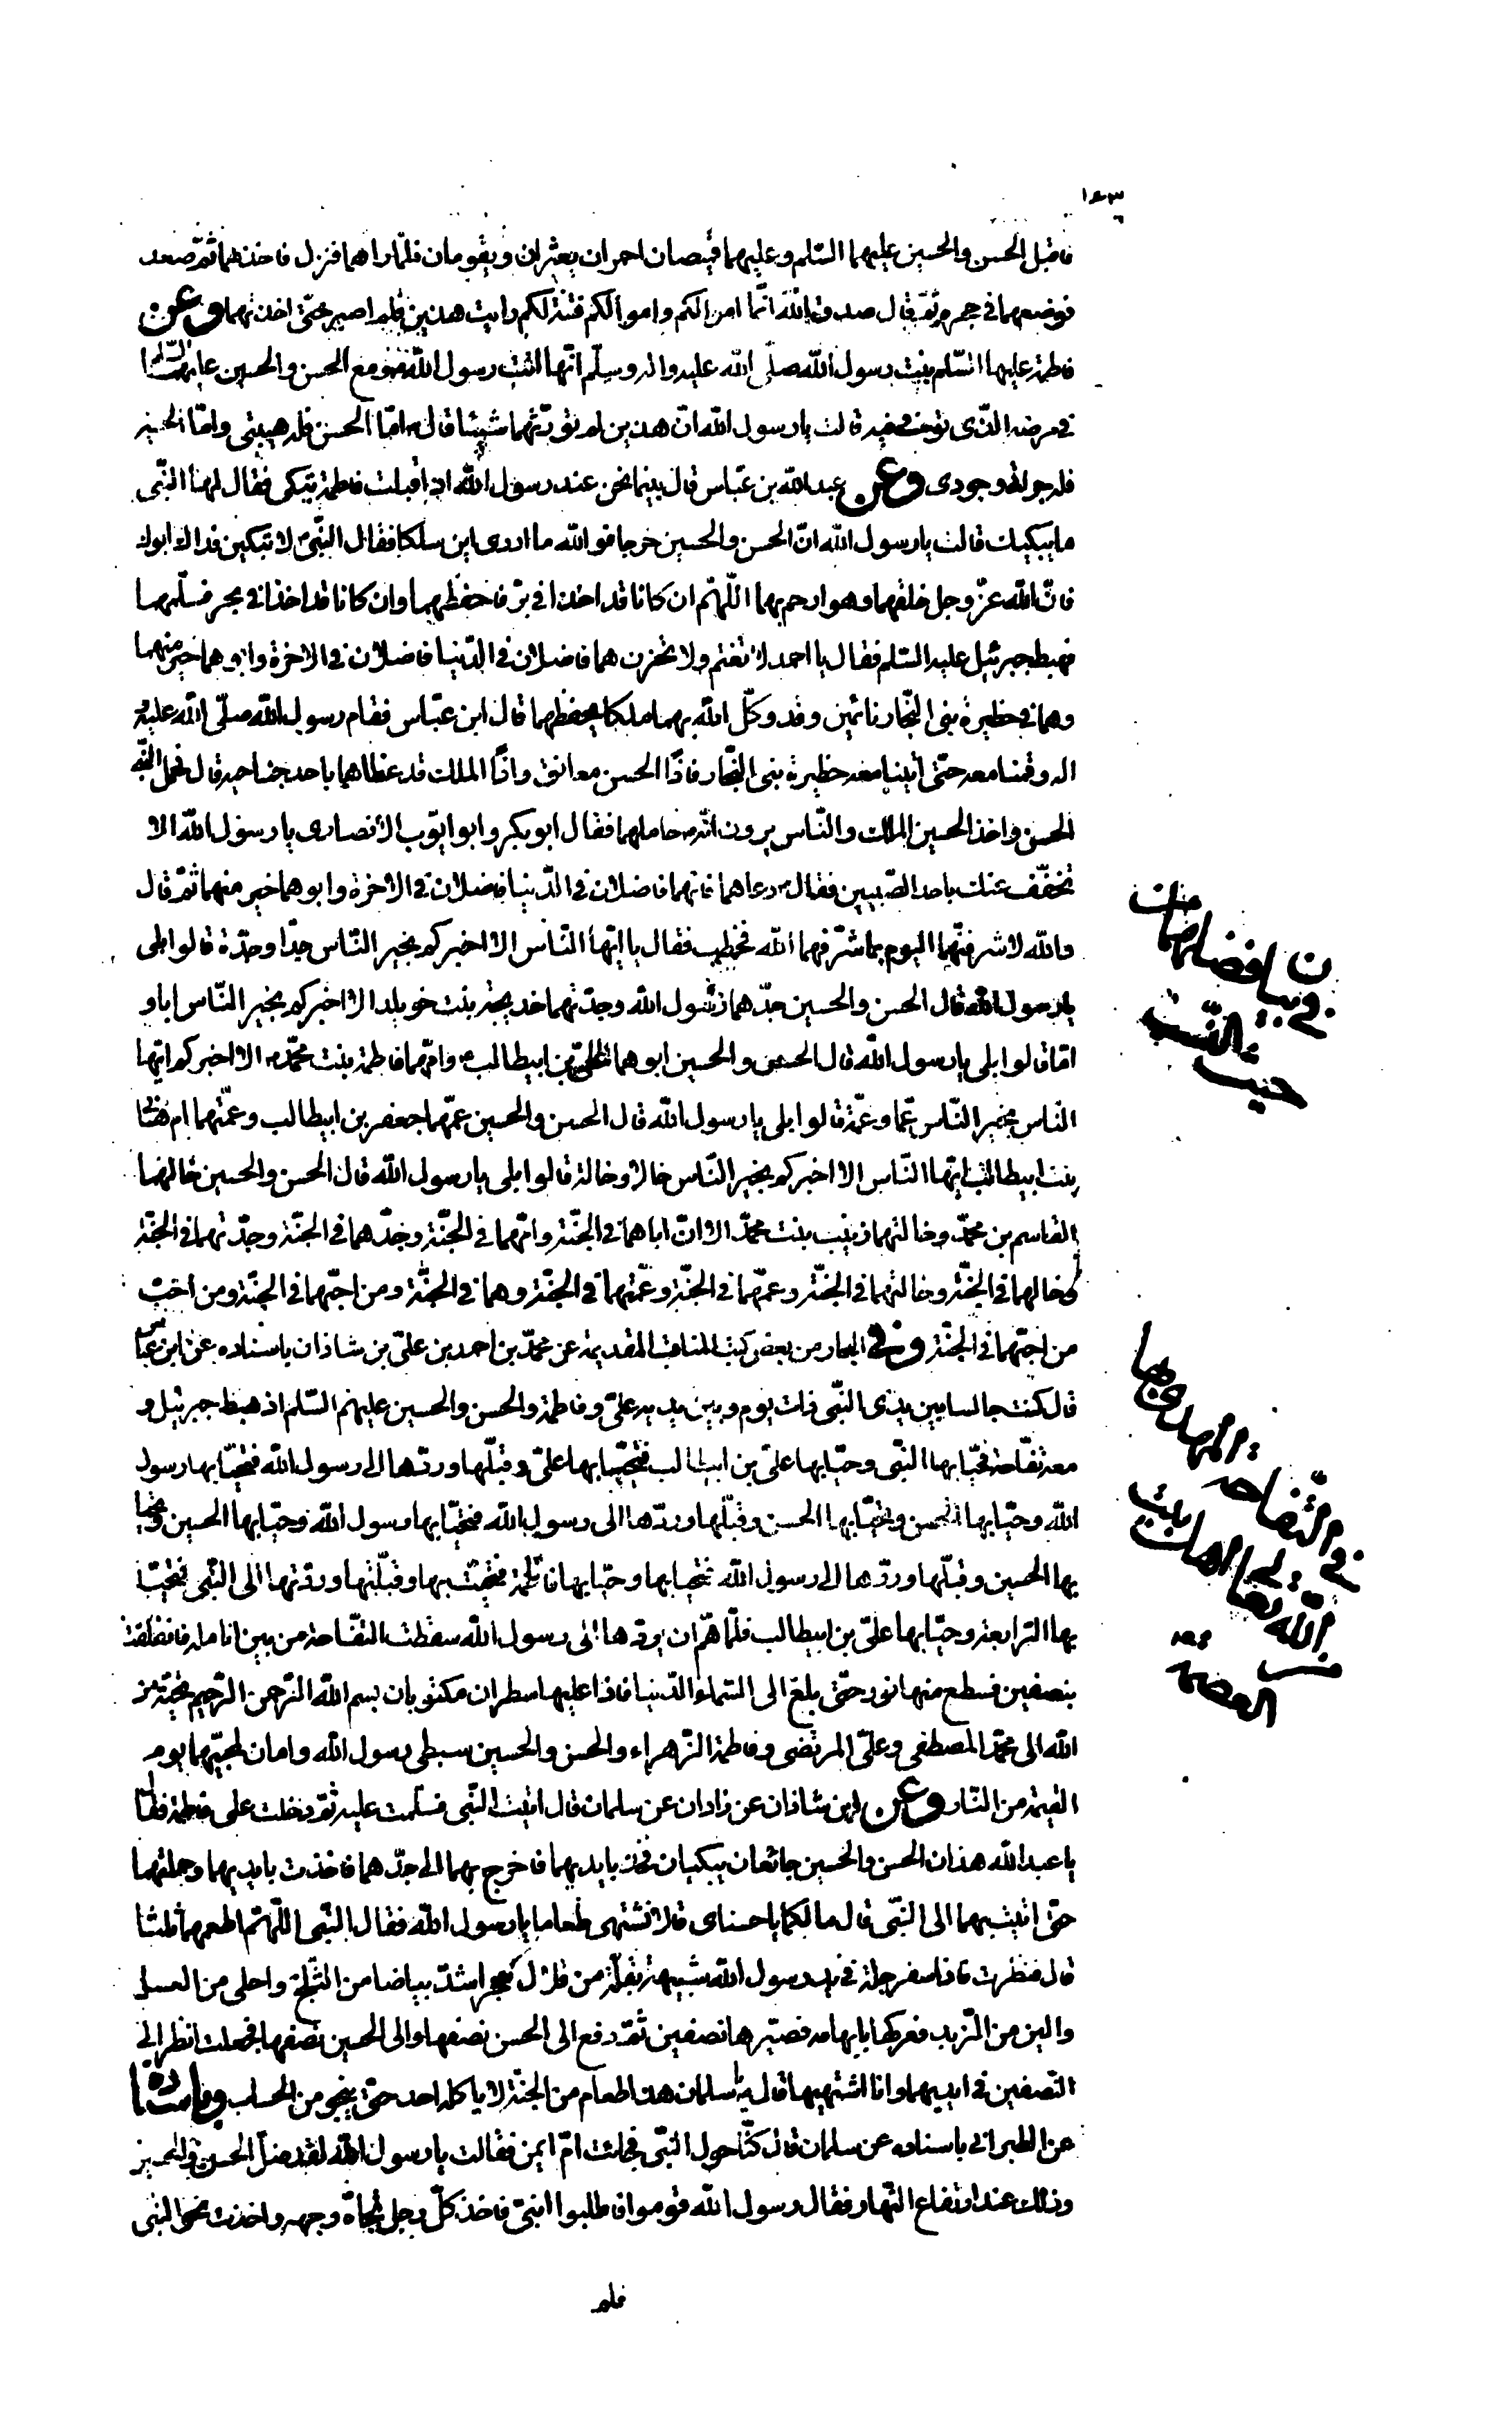 ١٤٣
فاقبل الحسن والحسين عليهما السّلم وعليهما قميصان احمران يعثران ويقومان فلمّا راهما فنزل فاخذهما ثمّ صعد
فوضعهما في حجره ثمّ قال صدق الله انّما اموالكم فتنة لكم رايت هذين فلم اصبر حتّى اخذتهما وعن
فاطمة عليها السّلم بنت رسول الله صلّى الله عليه واله وسلّم انّها اتت رسول الله مع الحسن والحسين عليهما السّلم
في مرضه الّذى توفى فيه قالت يا رسول الله انّ هذين لم تورّثهما شيئا قال امّا الحسن فله هيبتى وامّا الحسين
فله جراتى وجودى وعن عبد الله بن عبّاس قال بينما نحن عند رسول الله اذ اقبلت فاطمة تبكى فقال لها النّبى
ما يبكيك قالت يا رسول الله انّ الحسن والحسين خرجا فو الله ما ادرى اين سلكا فقال النّبى لا تبكين فداك ابوك
فانّ الله عزّ وجل خلقهما وهو ارحم بهما اللّهمّ ان كانا قد اخذا في برّ فاحفظهما وان كانا قد اخذا في بحر فسلّمهما
فهبط جبرئيل عليه السّلم فقال يا احمد لا تغتم ولا تحزن هما فاضلان في الدّنيا فاضلان في الاخرة وابوهما خير منهما
وهما في حظيرة بنى النّجار نائمين وقد وكّل الله بهما ملكا يحفظهما قال ابن عبّاس فقام رسول الله صلّى الله عليه و
اله وقمنا معه حتّى اتينا معه حظيرة بنى النّجار فاذا الحسن معانق واذا الملك قد غطاهما باحد جناحيه قال فحمل النّبى
الحسن واخذ الحسين الملك والنّاس يرون انّه حاملهما فقال ابو بكر وابو ايّوب الانصارى يا رسول الله الا
نخفّف عنك باحد الصّبيين فقال دعاهما فانّهما فاضلان في الدّنيا فاضلان في الاخرة وابوهما خير منهما ثمّ قال
والله لاشرفنّهما اليوم بما شرّفهما الله فخطب فقال يا ايّها النّاس الا اخبركم بخير النّاس جدّا وجدّة قالوا بلى
يا رسول الله قال الحسن والحسين جدّهما رسول الله وجدّتهما خديجة بنت خويلد الا اخبركم بخير النّاس ابا و
امّا قالوا بلى يا رسول الله قال الحسن والحسين ابوهما علىّ بن ابيطالب وامّهما فاطمة بنت محمّد الا اخبركم ايّها
النّاس بخير النّاس عمّا وعمّة قالوا بلى يا رسول الله قال الحسن والحسين عمّهما جعفر بن ابيطالب وعمّتهما ام هانى
بنت ابيطالب ايّها النّاس الا اخبركم بخير النّاس خالا وخالة قالوا بلى يا رسول الله قال الحسن والحسين خالهما
القاسم بن محمّد وخالتهما زينب بنت محمّد الا انّ اباهما في الجنّة وامّهما في الجنّة وجدّهما في الجنّة وجدّتهما في الجنّة
وخالهما في الجنّة وخالتهما في الجنّة وعمّهما في الجنّة وعمّتهما في الجنّة وهما في الجنّة ومن احبّهما في الجنّة ومن احبّ
من احبّهما في الجنّة وفى البحار من بعض كتب المناقب القديمة عن محمّد بن احمد بن علىّ بن شاذان باسناده عن ابن عبّاس
قال كنت جالسا بين يدى النّبى ذات يوم وبين يديه علىّ وفاطمة والحسن والحسين عليهم السّلم اذ هبط جبرئيل و
معه تفّاحة فحيّا بها النّبى وحيّا بها علىّ بن ابيطالب فتحيّا بها علىّ وقبّلها وردّها الى رسول الله فتحيّا بها رسول
الله وحيّا بها الحسن وتحيّا بها الحسن وقبّلها وردّها الى رسول الله فتحيّا بها رسول الله وحيّا بها الحسين وتحيّا
بها الحسين وقبّلها وردّها الى رسول الله فتحيّا بها وحيّا بها فاطمة فتحيّت بها وقبّلتها وردّتها الى النّبى فتحيّا
بها الرّابعة وحيّا بها علىّ بن ابيطالب فلمّا همّ ان يردّها الى رسول الله سقطت التفّاحة من بين انامله فانفلقت
بنصفين فسطع منها نور حتّى بلغ الى السّماء الدّنيا فاذا عليها سطران مكتوبان بسم الله الرّحمن الرّحيم تحيّة من
الله الى محمّد المصطفى وعلىّ المرتضى وفاطمة الزّهراء والحسن والحسين سبطى رسول الله وامان لمحبّيهما يوم
القيمة من النّار وعن ابن شاذان عن زاذان عن سلمان قال اتيت النّبى فسلّمت عليه ثمّ دخلت على فاطمة فقالت
يا عبد الله هذان الحسن والحسين جائعان يبكيان فخذ بايديهما فاخرج بهما الى جدّهما فاخذت بايديهما وحملتهما
حتّى اتيت بهما الى النّبى قال ما لكما يا حسناى قالا نشتهى طعاما يا رسول الله فقال النّبى اللّهمّ اطعمهما ثلثا
قال فنظرت فاذا سفرجلة في يد رسول الله شبيهة بقلّة من قلال هجر اشدّ بياضا من الثّلج واحلى من العسل
والين من الزّبد ففركها بابهامه فصيّرها نصفين ثمّ دفع الى الحسن نصفها والى الحسين نصفها فجعلت انظر الى
النّصفين في ايديهما وانا اشتهيها قال يا سلمان هذا طعام من الجنّة لا ياكله احد حتّى ينجو من الحساب
عن الطبرانى باسناده عن سلمان قال كنّا حول النّبى فجائت امّ ايمن فقالت يا رسول الله لقد ضلّ الحسن والحسين
وذلك عند ارتفاع النّهار فقال رسول الله قوموا فاطلبوا ابنىّ فاخذ كلّ رجل تجاه وجهه واخذت نحو النّبى
فلم
في بيان افضليتهما من
حيث النّسب
في التّفاحة المهداة بها
الله تعالى اهل بيت
العصمة